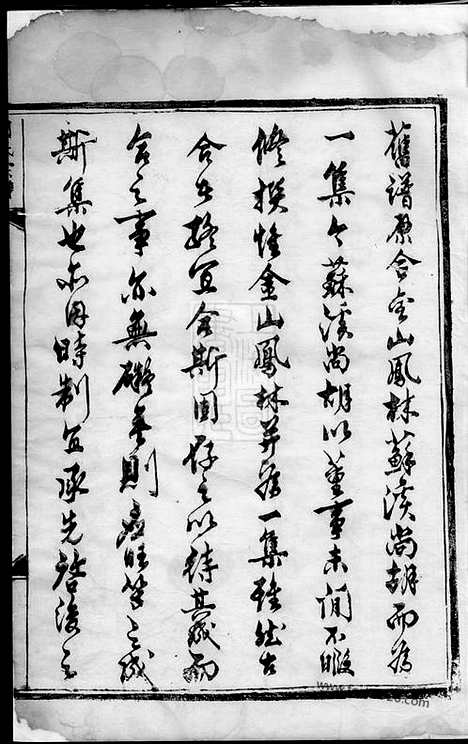 舊譜原合金山鳳林蘇溪尚胡而為
一集今蘇溪尚胡以董事未閒不暇
修撰惟金山鳳林并為一集雖然古
合者路宜合斯固存之以待其成而
合之事亦無礙也則應時等之成
斯集也亦因時制宜承先啓後之